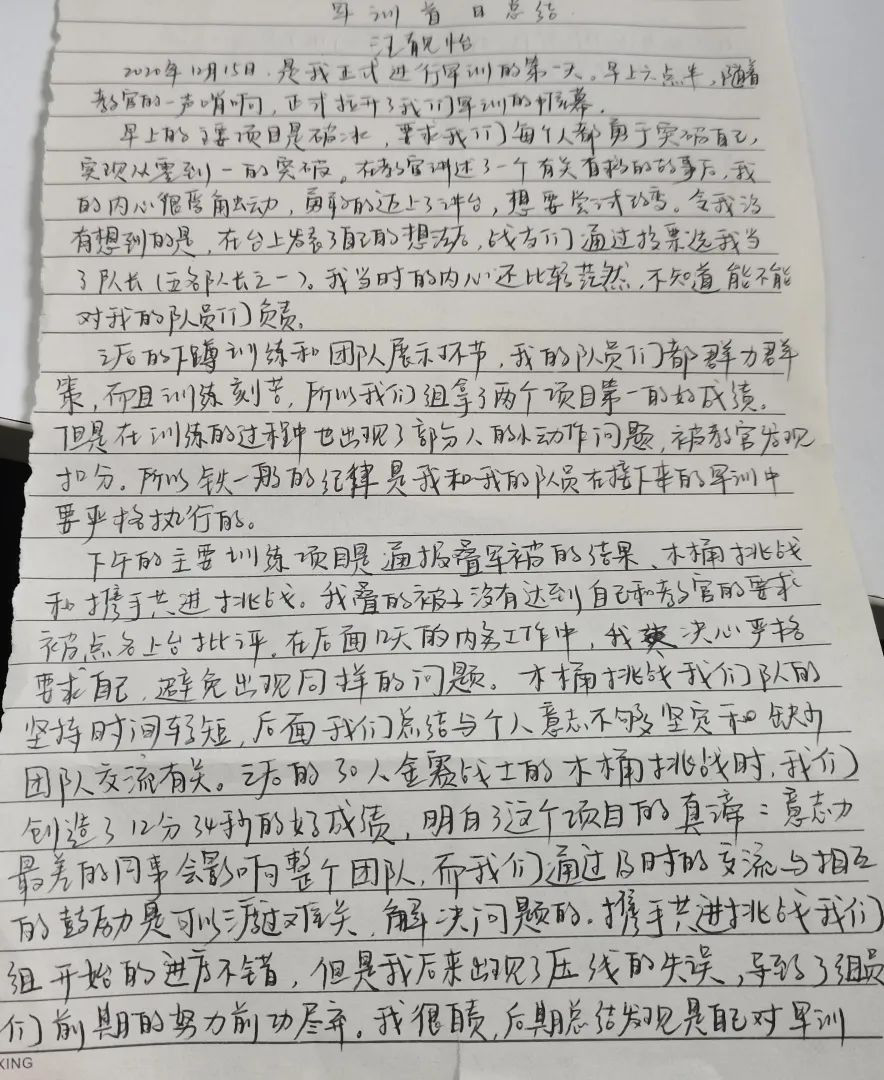 军训首日总结
汪靓怡
2020年12月15日,是我正式进行军训的第一天。早上六点半,随着
教官的一声哨响,正式拉开了我们军训的帷幕。
早上的主要项目是破冰,要求我们每个人都勇于突破自己,
实现从零到一的突破。在教官讲述了一个有关自杀的故事后,我
的内心很受触动,勇敢的迈上了讲台,想要尝试改变。令我没
有想到的是,在台上发表了自己的想法后,战友们通过投票选我当
了队长(五名队长之一)。我当时的内心还比较茫然,不知道能不能
对我的队员们负责。
之后的下蹲训练和团队展示环节,我的队员们都群力群
策,而且训练刻苦,所以我们组拿了两个项目第一的好成绩。
但是在训练的过程中也出现了部分人的小动作问题,被教官发现
扣分。所以铁一般的纪律是我和我的队员在接下来的军训中
要严格执行的。
下午的主要训练项目是通报叠军被的结果、木桶挑战
和携手共进挑战。我叠的被子没有达到自己和教官的要求
被点名上台批评,在后面12天的内务工作中,我决心严格
要求自己,避免出现同样的问题。木桶挑战我们队的
坚持时间较短,后面我们总结与个人意志不够坚定和缺少
团队交流有关。之后的30人金赛战士的木桶挑战时,我们
创造了12分34秒的好成绩,明白了这个项目的真谛:意志力
最差的同事会影响整个团队,而我们通过及时的交流与相互
的鼓励是可以渡过难关,解决问题的。携手共进挑战我们
组开始的进度不错,但是我后来出现了压线的失误,导致了组员
们前期的努力前功尽弃。我很自责,后期总结发现是自己对军训
KING